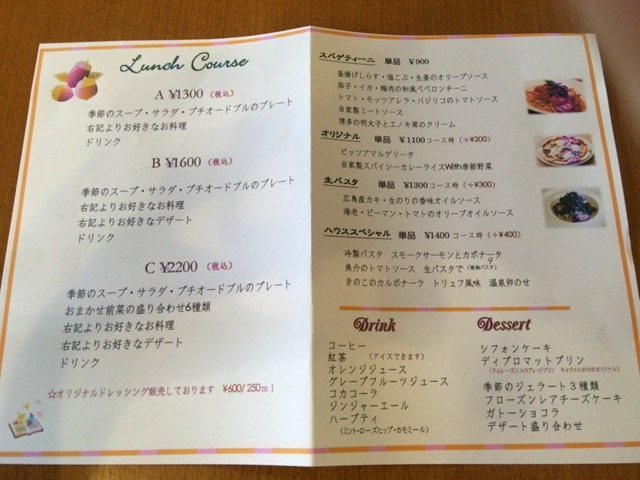 Lunch Course
A ¥1300 (税込)
季節のスープ・サラダ・プチオードブルのプレート
右記よりお好きなお料理
ドリンク
B ¥1600 (税込)
季節のスープ・サラダ・プチオードブルのプレート
右記よりお好きなお料理
右記よりお好きなデザート
ドリンク
C ¥2200 (税込)
季節のスープ・サラダ・プチオードブルのプレート
おまかせ前菜の盛り合わせ6種類
右記よりお好きなお料理
右記よりお好きなデザート
ドリンク
☆オリジナルドレッシング販売しております ¥600/250ml
スパゲティーニ 単品 ¥900
釜揚げしらす・塩こぶ・生姜のオリーブソース
茄子・イカ・梅肉の和風ペペロンチーニ
トマト・モッツアレラ・バジリコのトマトソース
自家製ミートソース
博多の明太子とエノキ茸のクリーム
オリジナル 単品 ¥1100コース時(+¥200)
ピッツアマルゲリータ
自家製スパイシーカレーライスWith季節野菜
生パスタ 単品 ¥1300コース時(+¥300)
広島産カキ・生のりの香味オイルソース
海老・ピーマン・トマトのオリーブオイルソース
ハウススペシャル 単品 ¥1400コース時(+¥400)
冷製パスタ スモークサーモンとカポナータ
魚介のトマトソース 生パスタで
きのこのカルボナーラ トリュフ風味 温泉卵のせ
Drink
コーヒー
紅茶 (アイスできます)
オレンジジュース
グレープフルーツジュース
コカコーラ
ジンジャーエール
ハーブティ
(ミント・ローズヒップ・カモミール)
Dessert
シフォンケーキ
ディプロマットプリン
季節のジェラート3種類
フローズンレアチーズケーキ
ガトーショコラ
デザート盛り合わせ